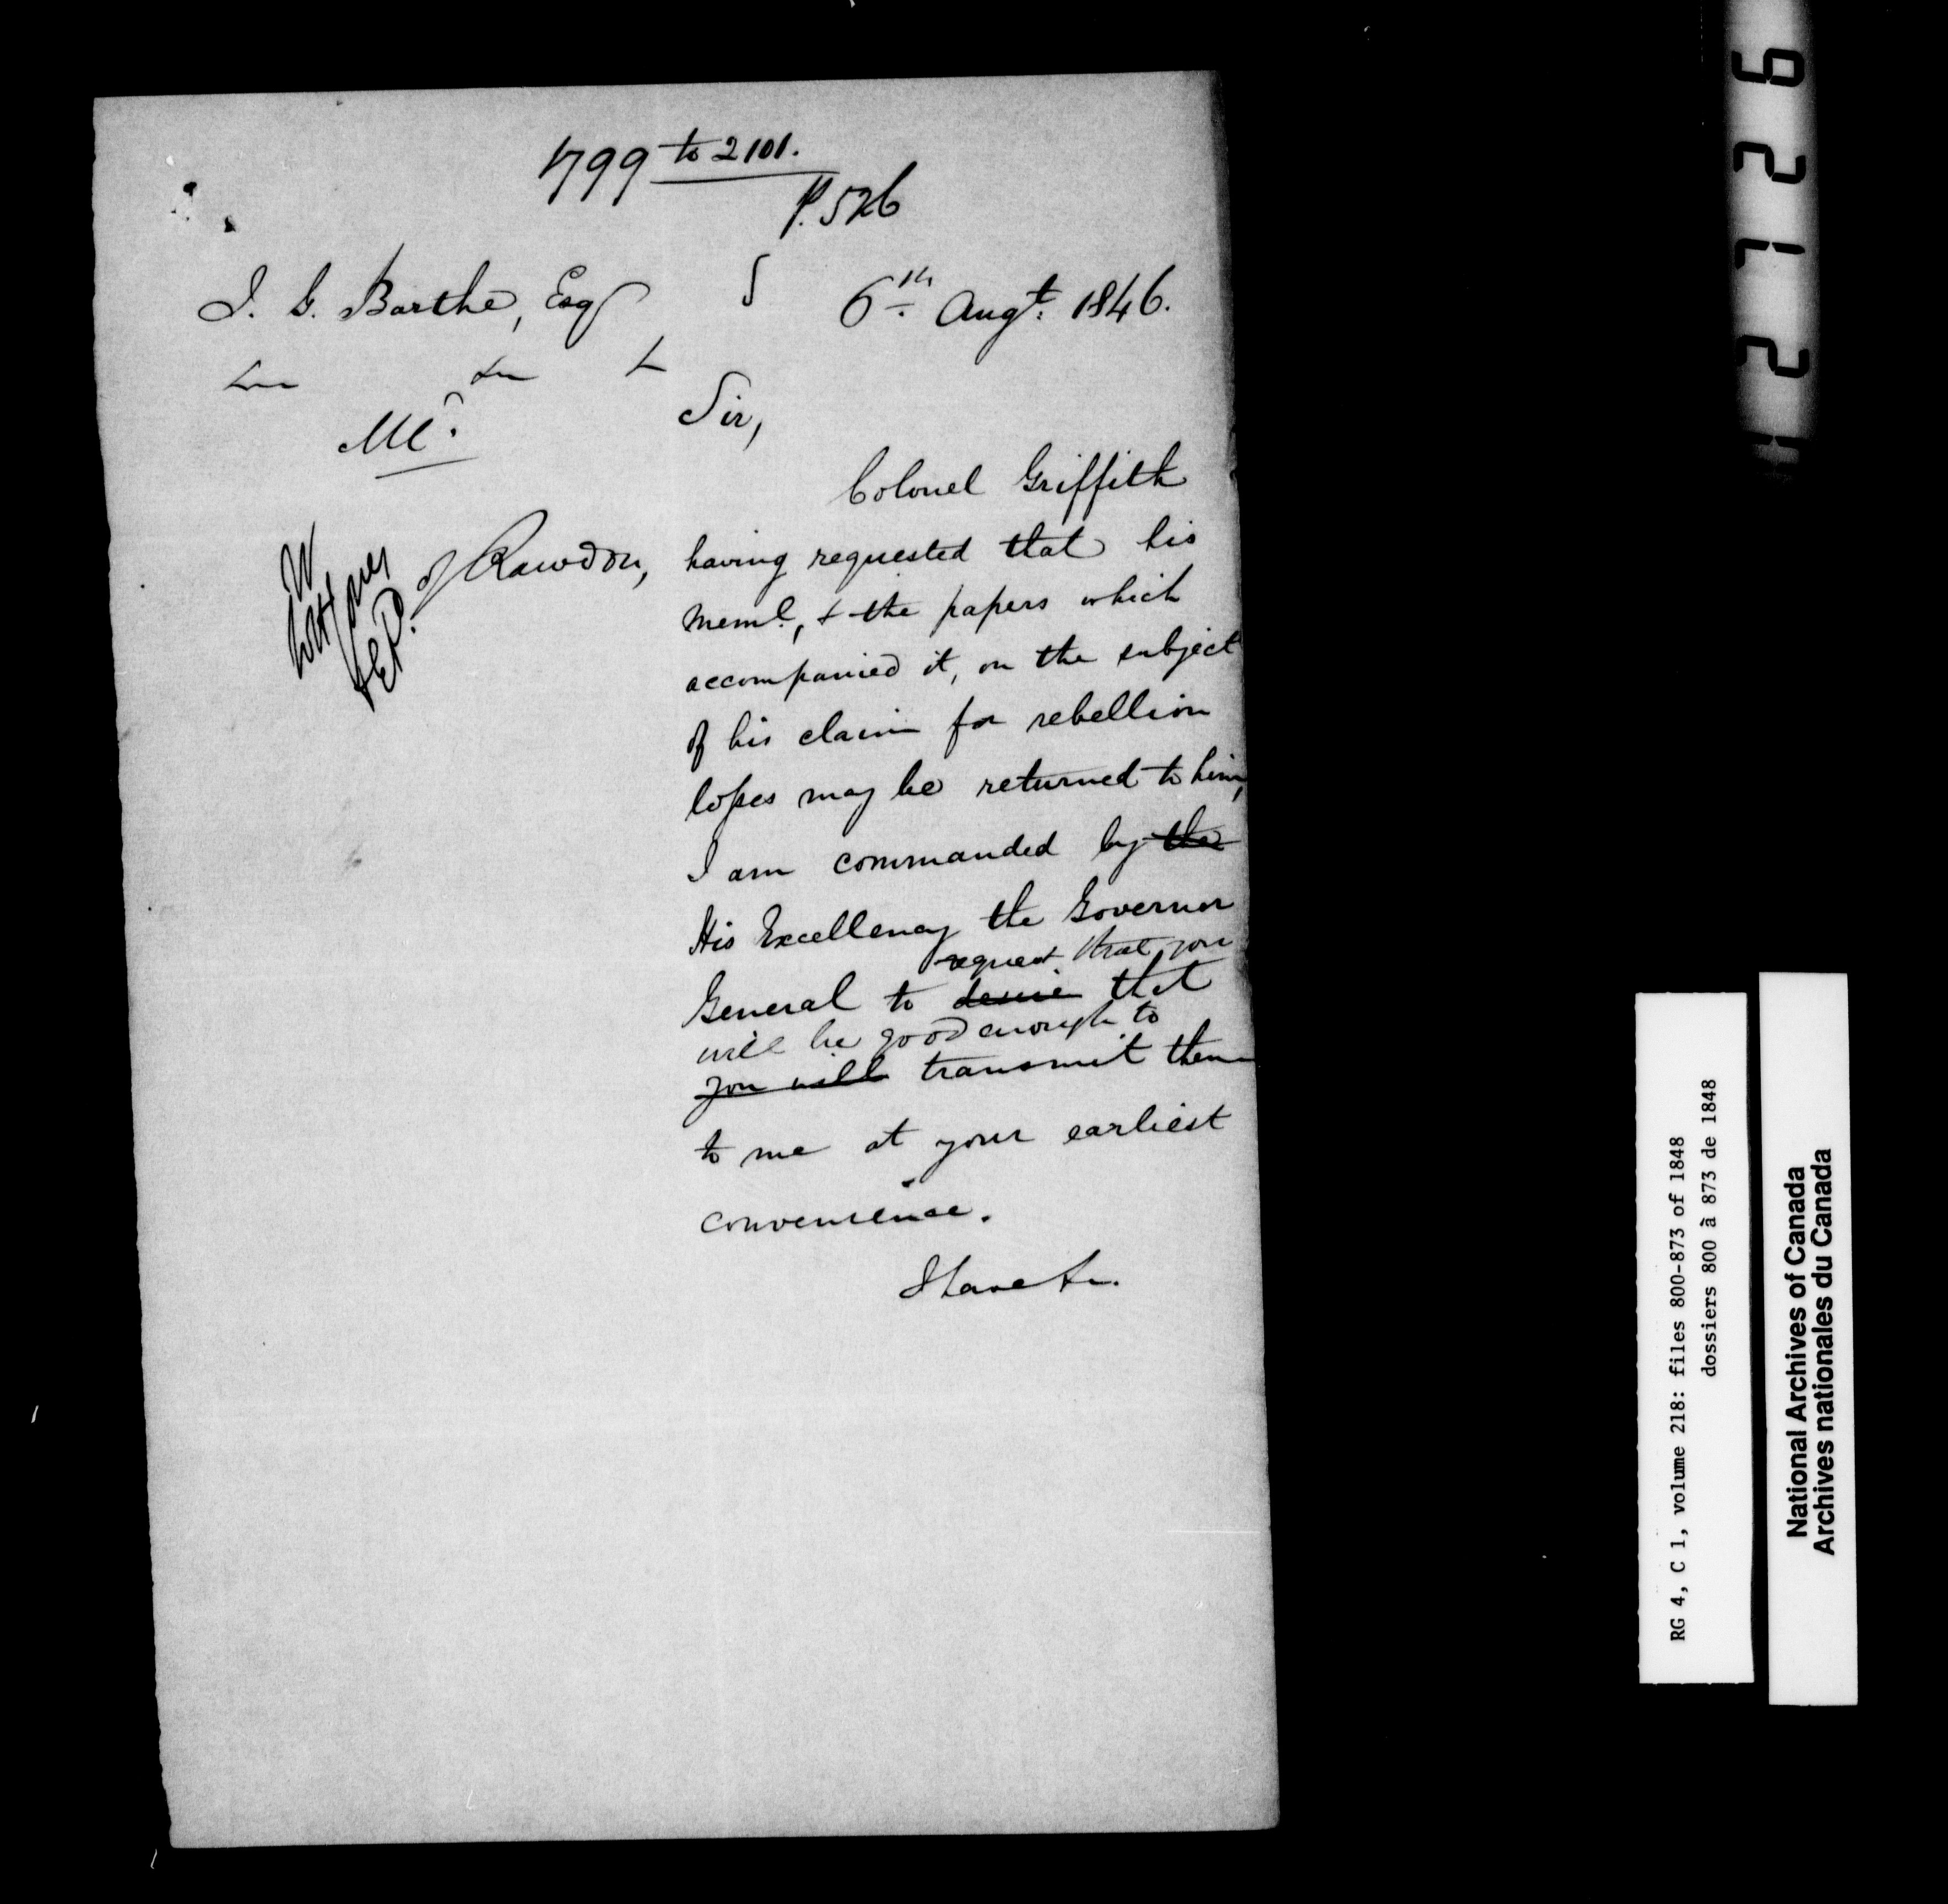 1799 to 2101.
P. 526
J. G. Barthe, Esq
6th Augt. 1846.
&c &c &c
Ml.
Sir,
Colonel Griffith
of Rawdon,
having requested that his
Meml., & the papers which
accompanied it, on the subject
of his claim for rebellion
losses may be returned to him,
I am commanded by the
His Excellency the Governor
request that you
General to desire that
will be good enough to
you will transmit them
to me at your earliest
convenience.
I have &c.
62712
RG 4, C 1, volume 218: files 800-873 of 1848
dossiers 800 à 873 de 1848
National Archives of Canada
Archives nationales du Canada